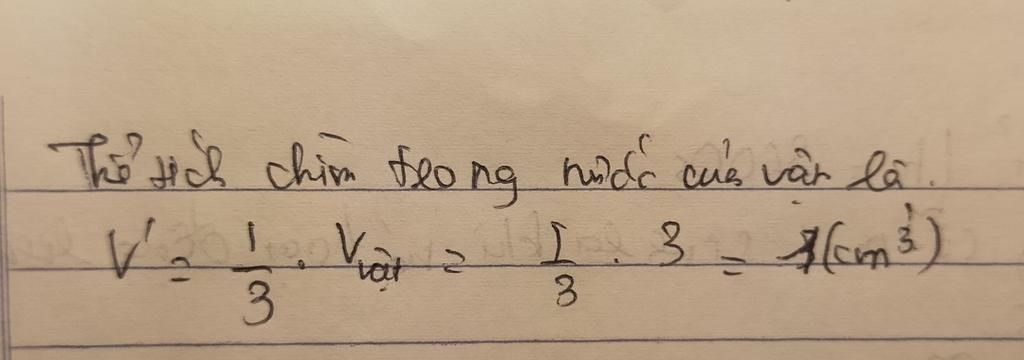 Thể tích chìm trong nước của vật là.
V' = 1/3 . Vvật = 1/3 . 3 = 1(cm³)